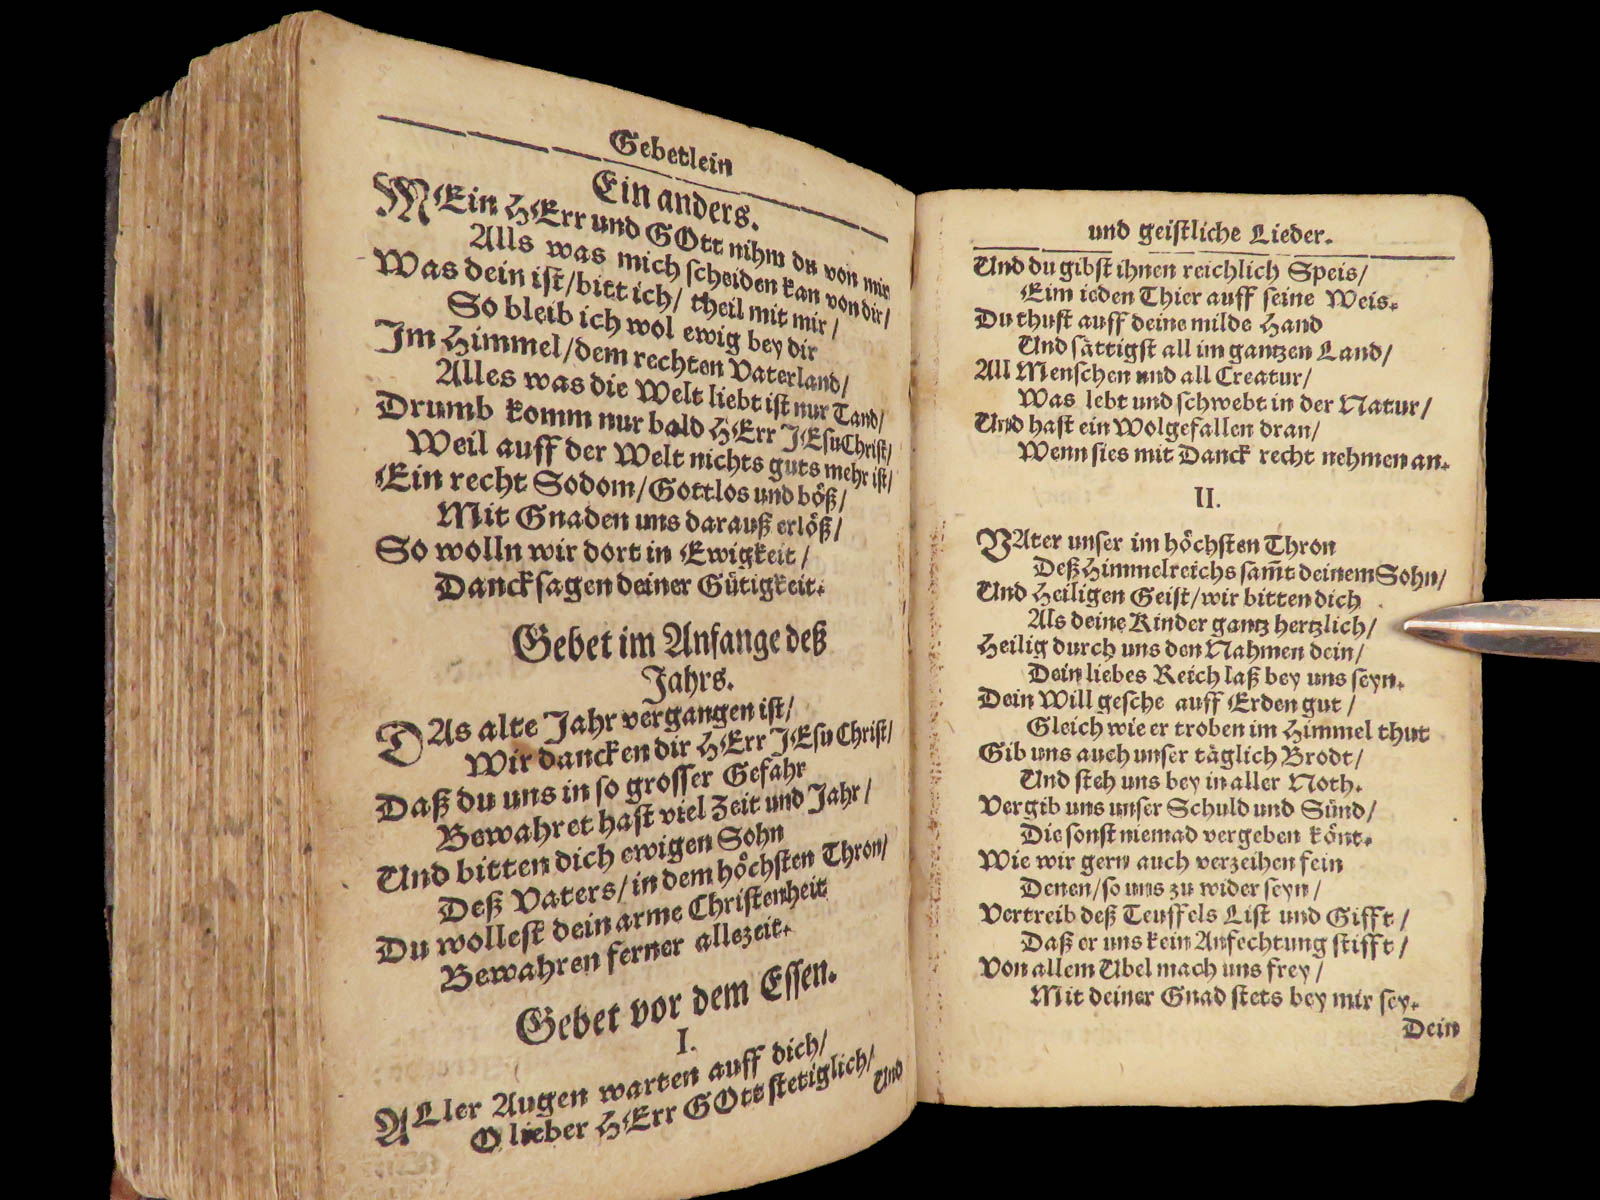 Gebetlein
Ein anders.
MEin HErr und GOtt nihm du von mir
Alls was mich scheiden kan von dir/
Was dein ist/bitt ich/ theil mit mir/
So bleib ich wol ewig bey dir
Im Himmel/dem rechten Vaterland/
Alles was die Welt liebt ist nur Tand/
Drumb komm nur bald HErr JEsu Christ/
Weil auff der Welt nichts guts mehr ist/
Ein recht Sodom/Gottlos und böß/
Mit Gnaden uns darauß erlöß/
So wolln wir dort in Ewigkeit/
Danck sagen deiner Gütigkeit.
Gebet im Anfange deß
Jahrs.
DAs alte Jahr vergangen ist/
Wir dancken dir HErr JEsu Christ/
Daß du uns in so grosser Gefahr
Bewahret hast viel Zeit und Jahr/
Und bitten dich ewigen Sohn
Deß Vaters/in dem höchsten Thron/
Du wollest dein arme Christenheit
Bewahren ferner allezeit.
Gebet vor dem Essen.
I.
ALler Augen warten auff dich/
O lieber HErr GOtt stetiglich/
Und
und geistliche Lieder.
Und du gibst ihnen reichlich Speis/
Eim ieden Thier auff seine Weis.
Du thust auff deine milde Hand
Und sättigst all im gantzen Land/
All Menschen und all Creatur/
Was lebt und schwebt in der Natur/
Und hast ein Wolgefallen dran/
Wenn sies mit Danck recht nehmen an.
II.
VAter unser im höchsten Thron
Deß Himmelreichs sam̄t deinem Sohn/
Und Heiligen Geist/wir bitten dich
Als deine Kinder gantz hertzlich/
Heilig durch uns den Nahmen dein/
Dein liebes Reich laß bey uns seyn.
Dein Will gesche auff Erden gut/
Gleich wie er troben im Himmel thut
Gib uns auch unser täglich Brodt/
Und steh uns bey in aller Noth.
Vergib uns unser Schuld und Sünd/
Die sonst niemad vergeben könt.
Wie wir gern auch verzeihen fein
Denen/so uns zu wider seyn/
Vertreib deß Teuffels List und Gifft/
Daß er uns kein Anfechtung stifft/
Von allem Ubel mach uns frey/
Mit deiner Gnad stets bey mir sey.
Dein